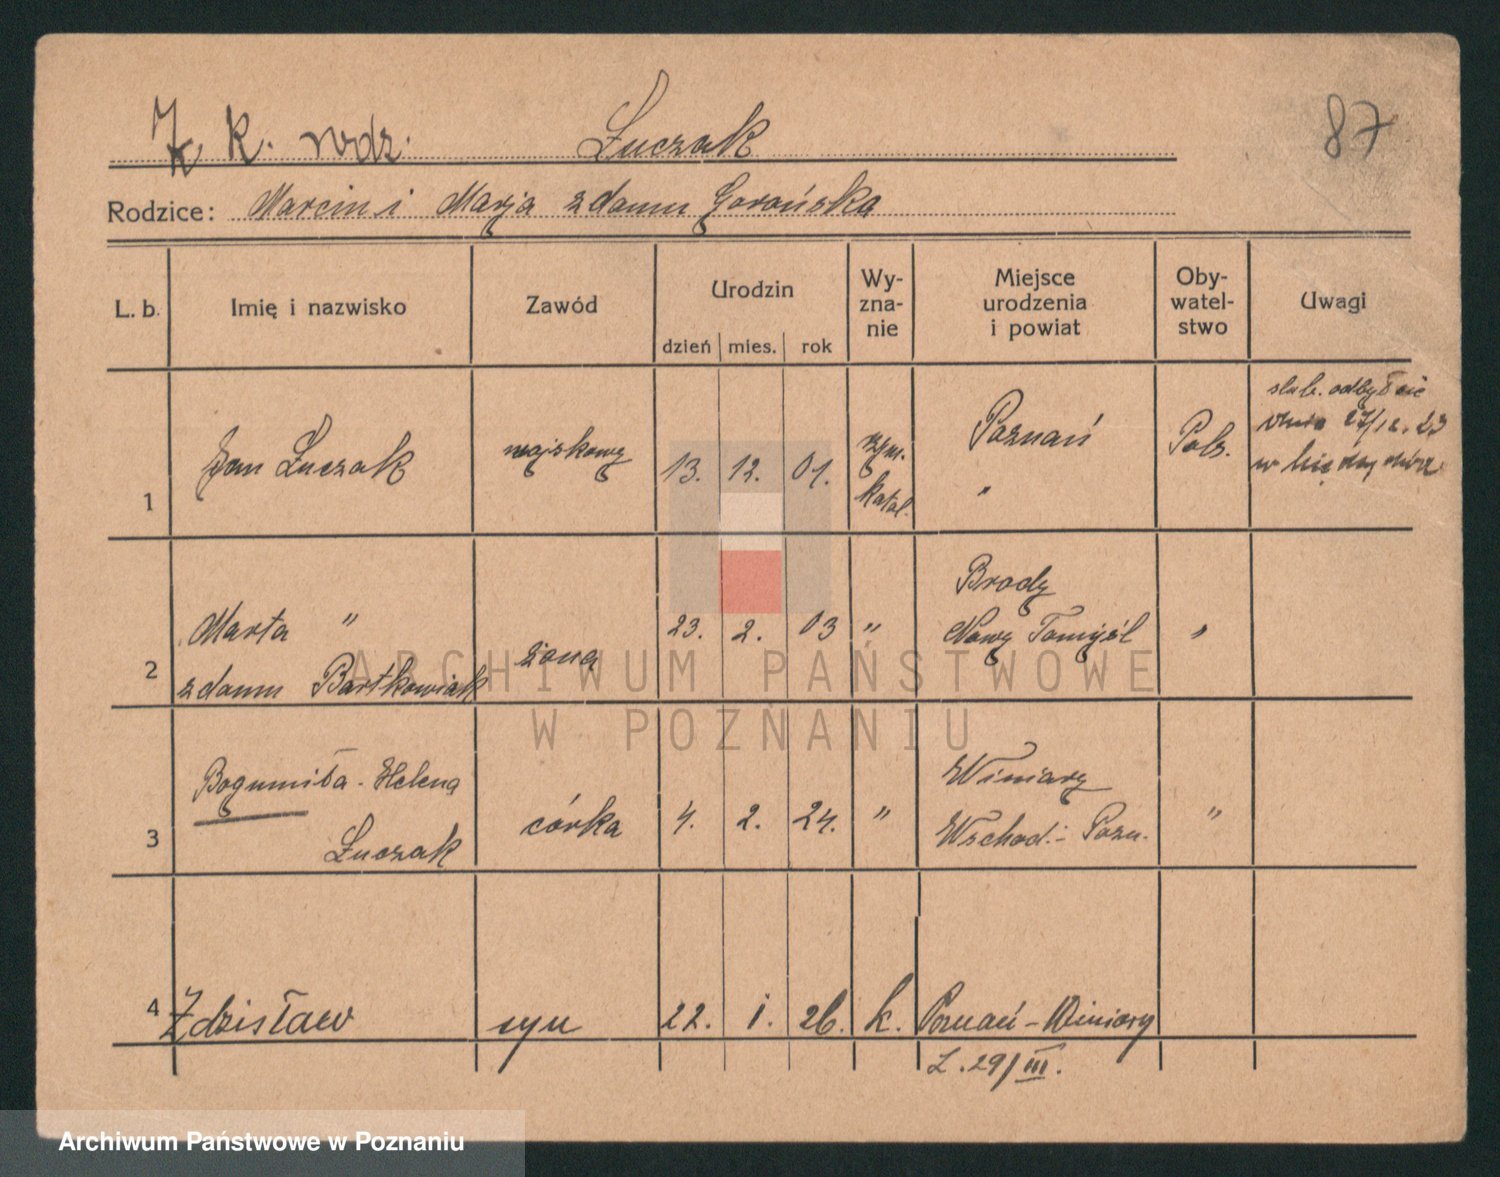 Ż. k. rodz. Łuczak 87
Rodzice: Marcin i Marja z domu Gorońska
L. b. Imię i nazwisko Zawód Urodzin Wy-zna-nie Miejsce urodzenia i powiat Oby-watel-stwo Uwagi
dzień mies. rok
1 Jan Łuczak wojskowy 13. 12. 01. rzym. katol. Poznań " Pols.
ślub. odbył się
dnia 27/12. 23
w
Brody
2 Marta " żona 23. 2. 03 " Nowy Tomyśl "
z domu Bartkowiak
Bogumiła - Helena Winiary
3 Łuczak córka 4. 2. 24. " Wschod. - Pozn. "
4 Zdzisław syn 22. 1. 26. k. Poznań - Winiary
Z. 29/III.
ARCHIWUM PAŃSTWOWE
W POZNANIU
Archiwum Państwowe w Poznaniu